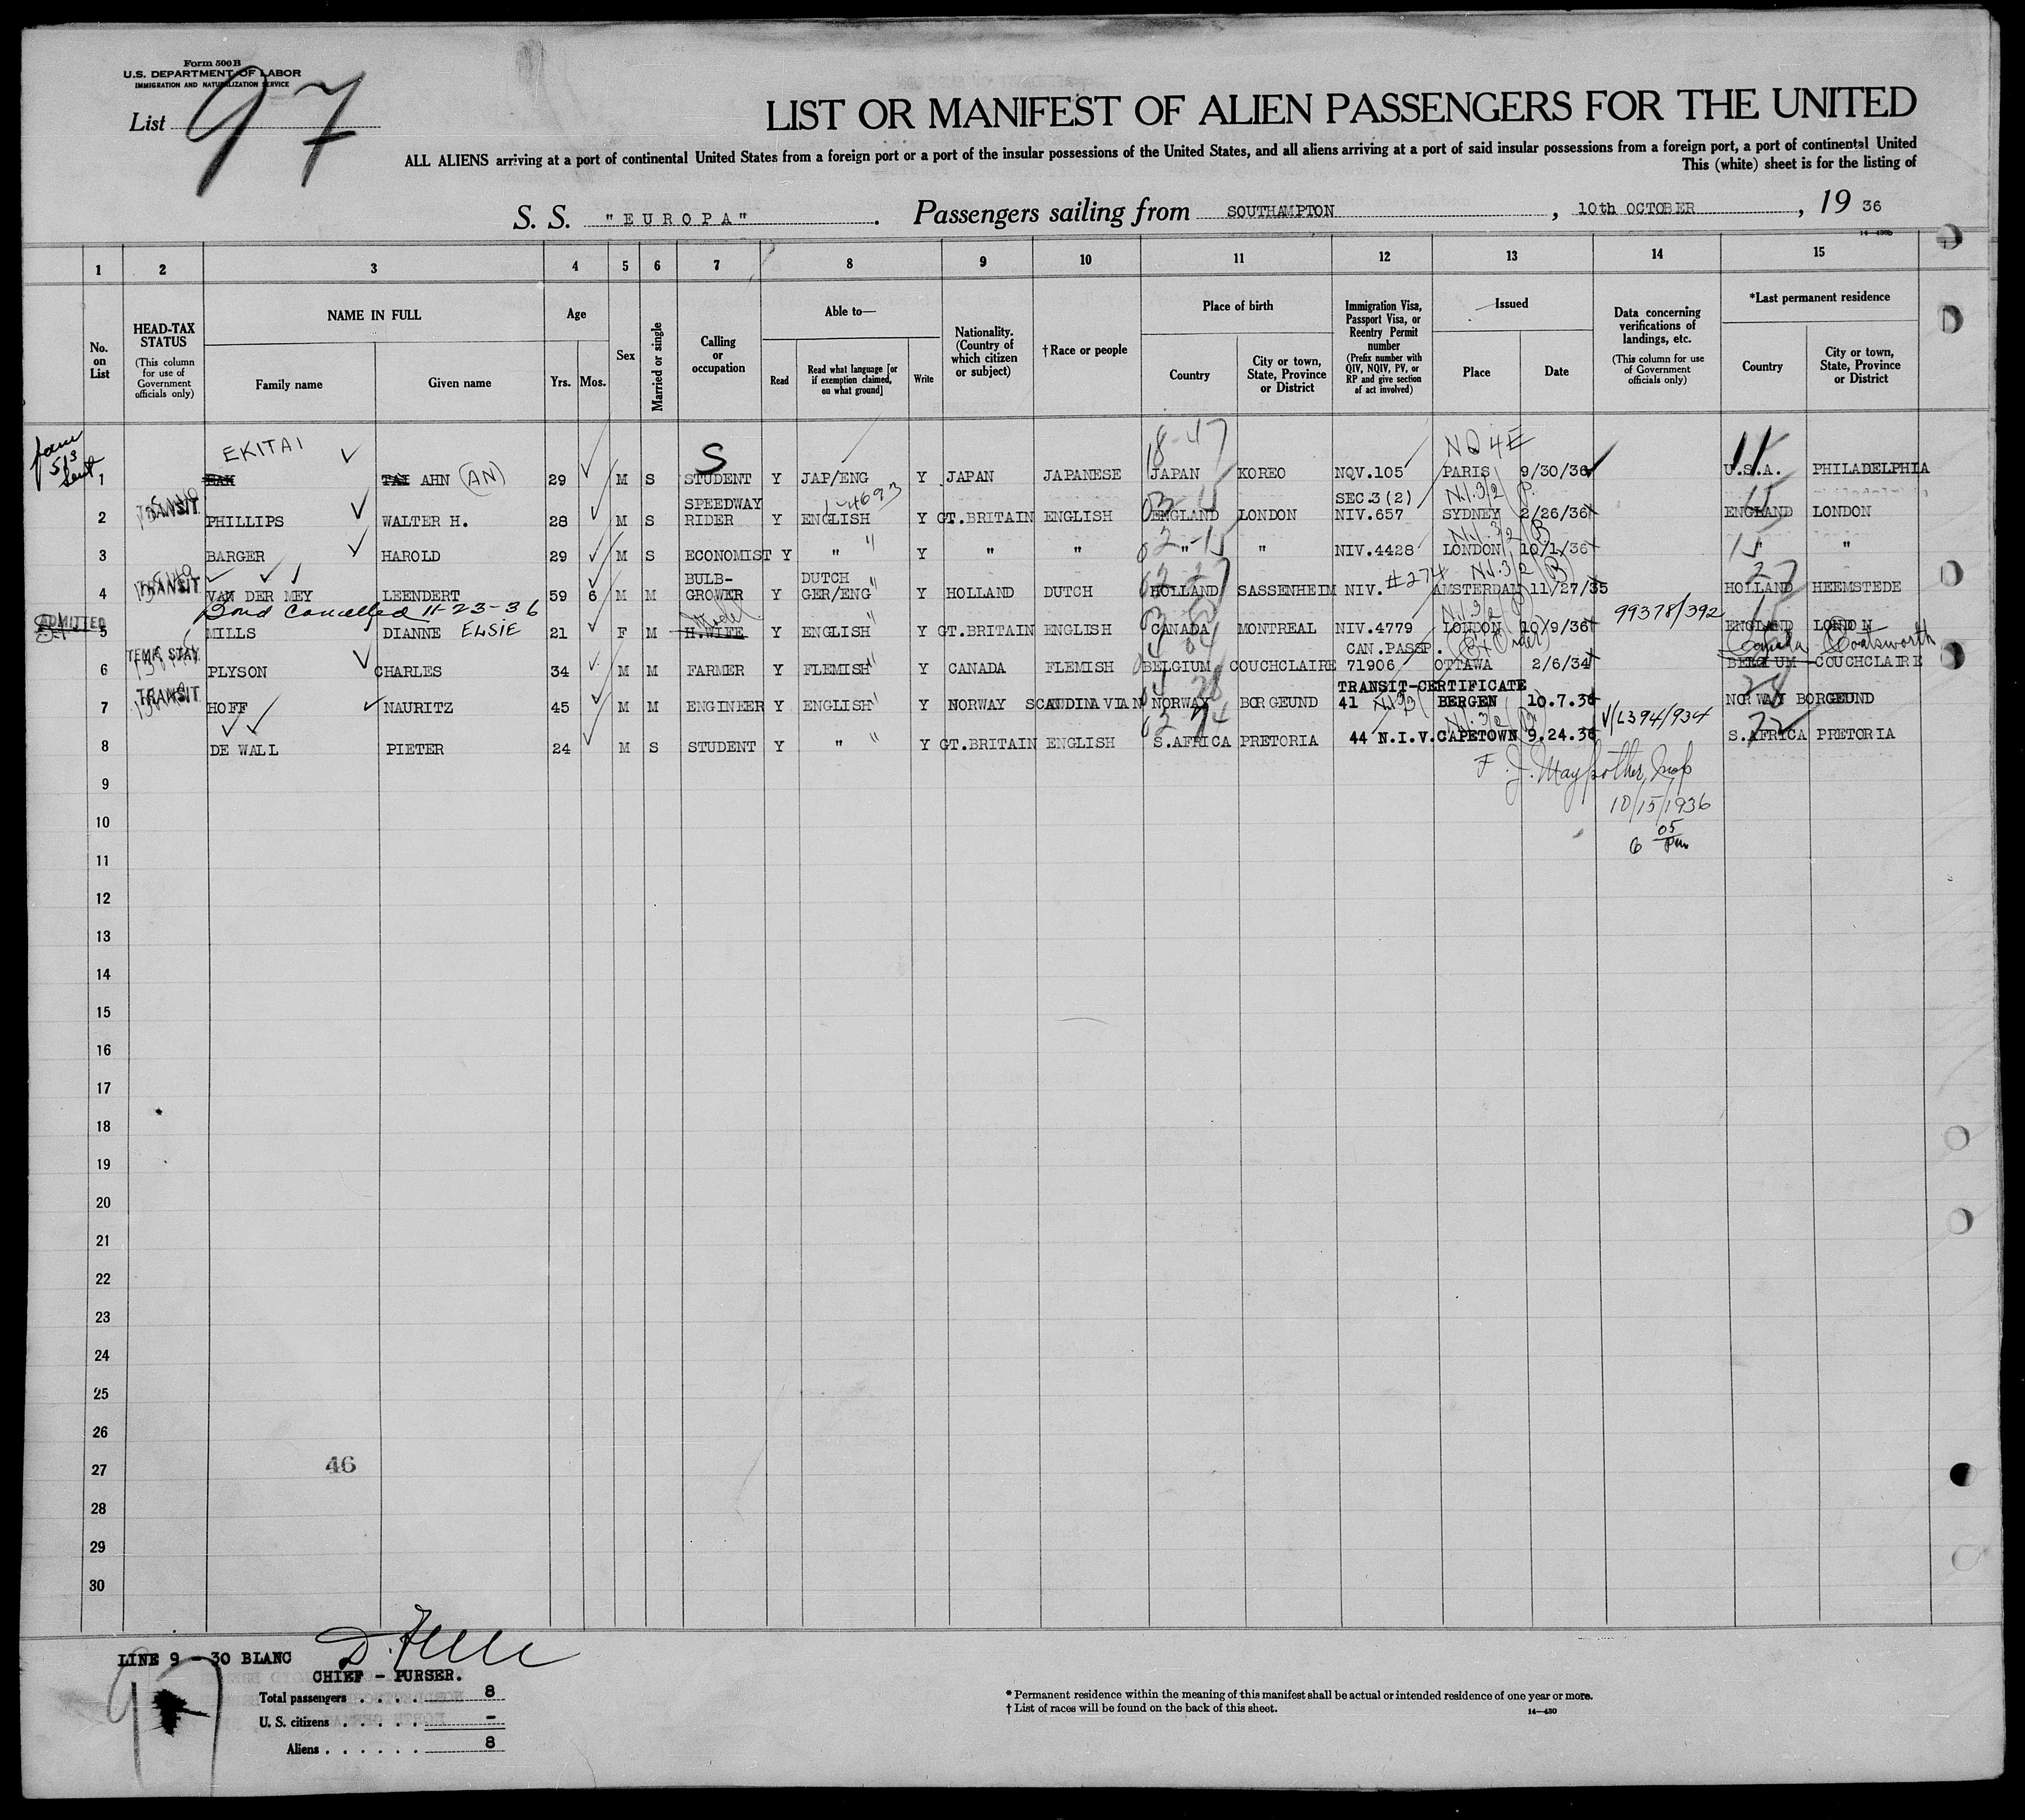 Form 500 B
U.S. DEPARTMENT OF LABOR
IMMIGRATION AND NATURALIZATION SERVICE
List 97
LIST OR MANIFEST OF ALIEN PASSENGERS FOR THE UNITED
ALL ALIENS arriving at a port of continental United States from a foreign port or a port of the insular possessions of the United States, and all aliens arriving at a port of said insular possessions from a foreign port, a port of continental United
This (white) sheet is for the listing of
S. S. "EUROPA". Passengers sailing from SOUTHAMPTON, 10th OCTOBER, 19 36
1 2 3 4 5 6 7 8 9 10 11 12 13 14 15
No. on List
HEAD-TAX STATUS
(This column for use of Government officials only)
NAME IN FULL
Family name
Given name
Age
Yrs. Mos.
Sex
Married or single
Calling or occupation
Able to—
Read
Read what language [or if exemption claimed, on what ground]
Write
Nationality. (Country of which citizen or subject)
†Race or people
Place of birth
Country
City or town, State, Province or District
Immigration Visa, Passport Visa, or Reentry Permit number
(Prefix number with QIV, NQIV, PV, or RP and give section of act involved)
Issued
Place
Date
Data concerning verifications of landings, etc.
(This column for use of Government officials only)
*Last permanent residence
Country
City or town, State, Province or District
EKITAI S 18-47 NQ 4E 11
form 513 sent
1 TAI AHN (AN) 29 M S STUDENT Y JAP/ENG Y JAPAN JAPANESE JAPAN KOREO NQV.105 PARIS 9/30/36 U.S.A. PHILADELPHIA
TRANSIT SPEEDWAY SEC.3(2)
2 PHILLIPS WALTER H. 28 M S RIDER Y ENGLISH Y GT.BRITAIN ENGLISH ENGLAND LONDON NIV.657 SYDNEY 2/26/36 ENGLAND LONDON
3 BARGER HAROLD 29 M S ECONOMIST Y " Y " " " " NIV.4428 LONDON 10/1/36 " "
TRANSIT BULB- DUTCH
4 VAN DER MEY LEENDERT 59 6 M M GROWER Y GER/ENG Y HOLLAND DUTCH HOLLAND SASSENHEIM NIV. #274 AMSTERDAM 11/27/35 HOLLAND HEEMSTEDE
Bond Cancelled 11-23-36 Model 99378/392
ADMITTED
5 MILLS DIANNE ELSIE 21 F M H.WIFE Y ENGLISH Y GT.BRITAIN ENGLISH CANADA MONTREAL NIV.4779 LONDON 10/9/36 ENGLAND LONDON
TEMP. STAY CAN.PASSP. Canada Coatsworth
6 PLYSON CHARLES 34 M M FARMER Y FLEMISH Y CANADA FLEMISH BELGIUM COUCHCLAIRE 71906 OTTAWA 2/6/34 BELGIUM COUCHCLAIRE
TRANSIT TRANSIT-CERTIFICATE
7 HOFF NAURITZ 45 M M ENGINEER Y ENGLISH Y NORWAY SCANDINAVIAN NORWAY BORGEUND 41 BERGEN 10.7.36 NORWAY BORGEUND
V/L394/934
8 DE WALL PIETER 24 M S STUDENT Y " Y GT.BRITAIN ENGLISH S.AFRICA PRETORIA 44 N.I.V. CAPETOWN 9.24.36 S.AFRICA PRETORIA
9
10/15/1936
10
6 05 pm
11
12
13
14
15
16
17
18
19
20
21
22
23
24
25
26
27 46
28
29
30
LINE 9 - 30 BLANC
CHIEF - PURSER.
Total passengers . . . . 8
U. S. citizens . . . . . -
Aliens . . . . . . 8
97
* Permanent residence within the meaning of this manifest shall be actual or intended residence of one year or more.
† List of races will be found on the back of this sheet.
14—430